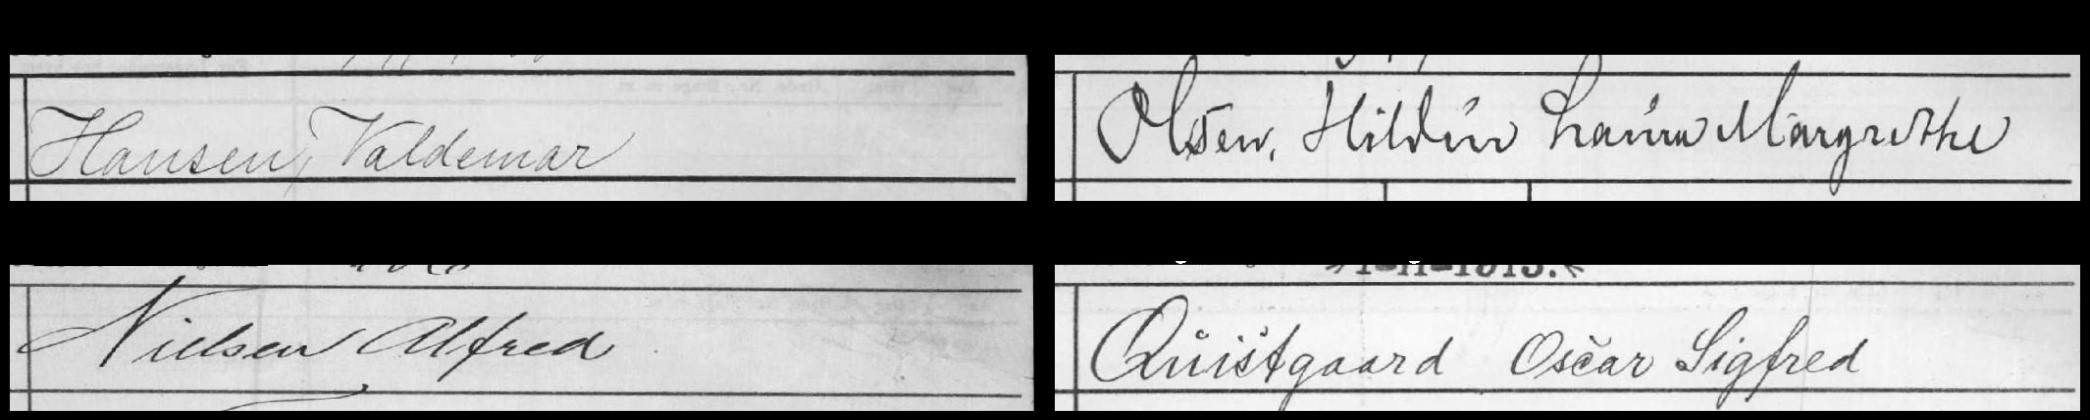 Hansen, Valdemar
Olsen, Hildur Laura Margrethe
Nielsen Alfred
Quistgaard Oscar Sigfred